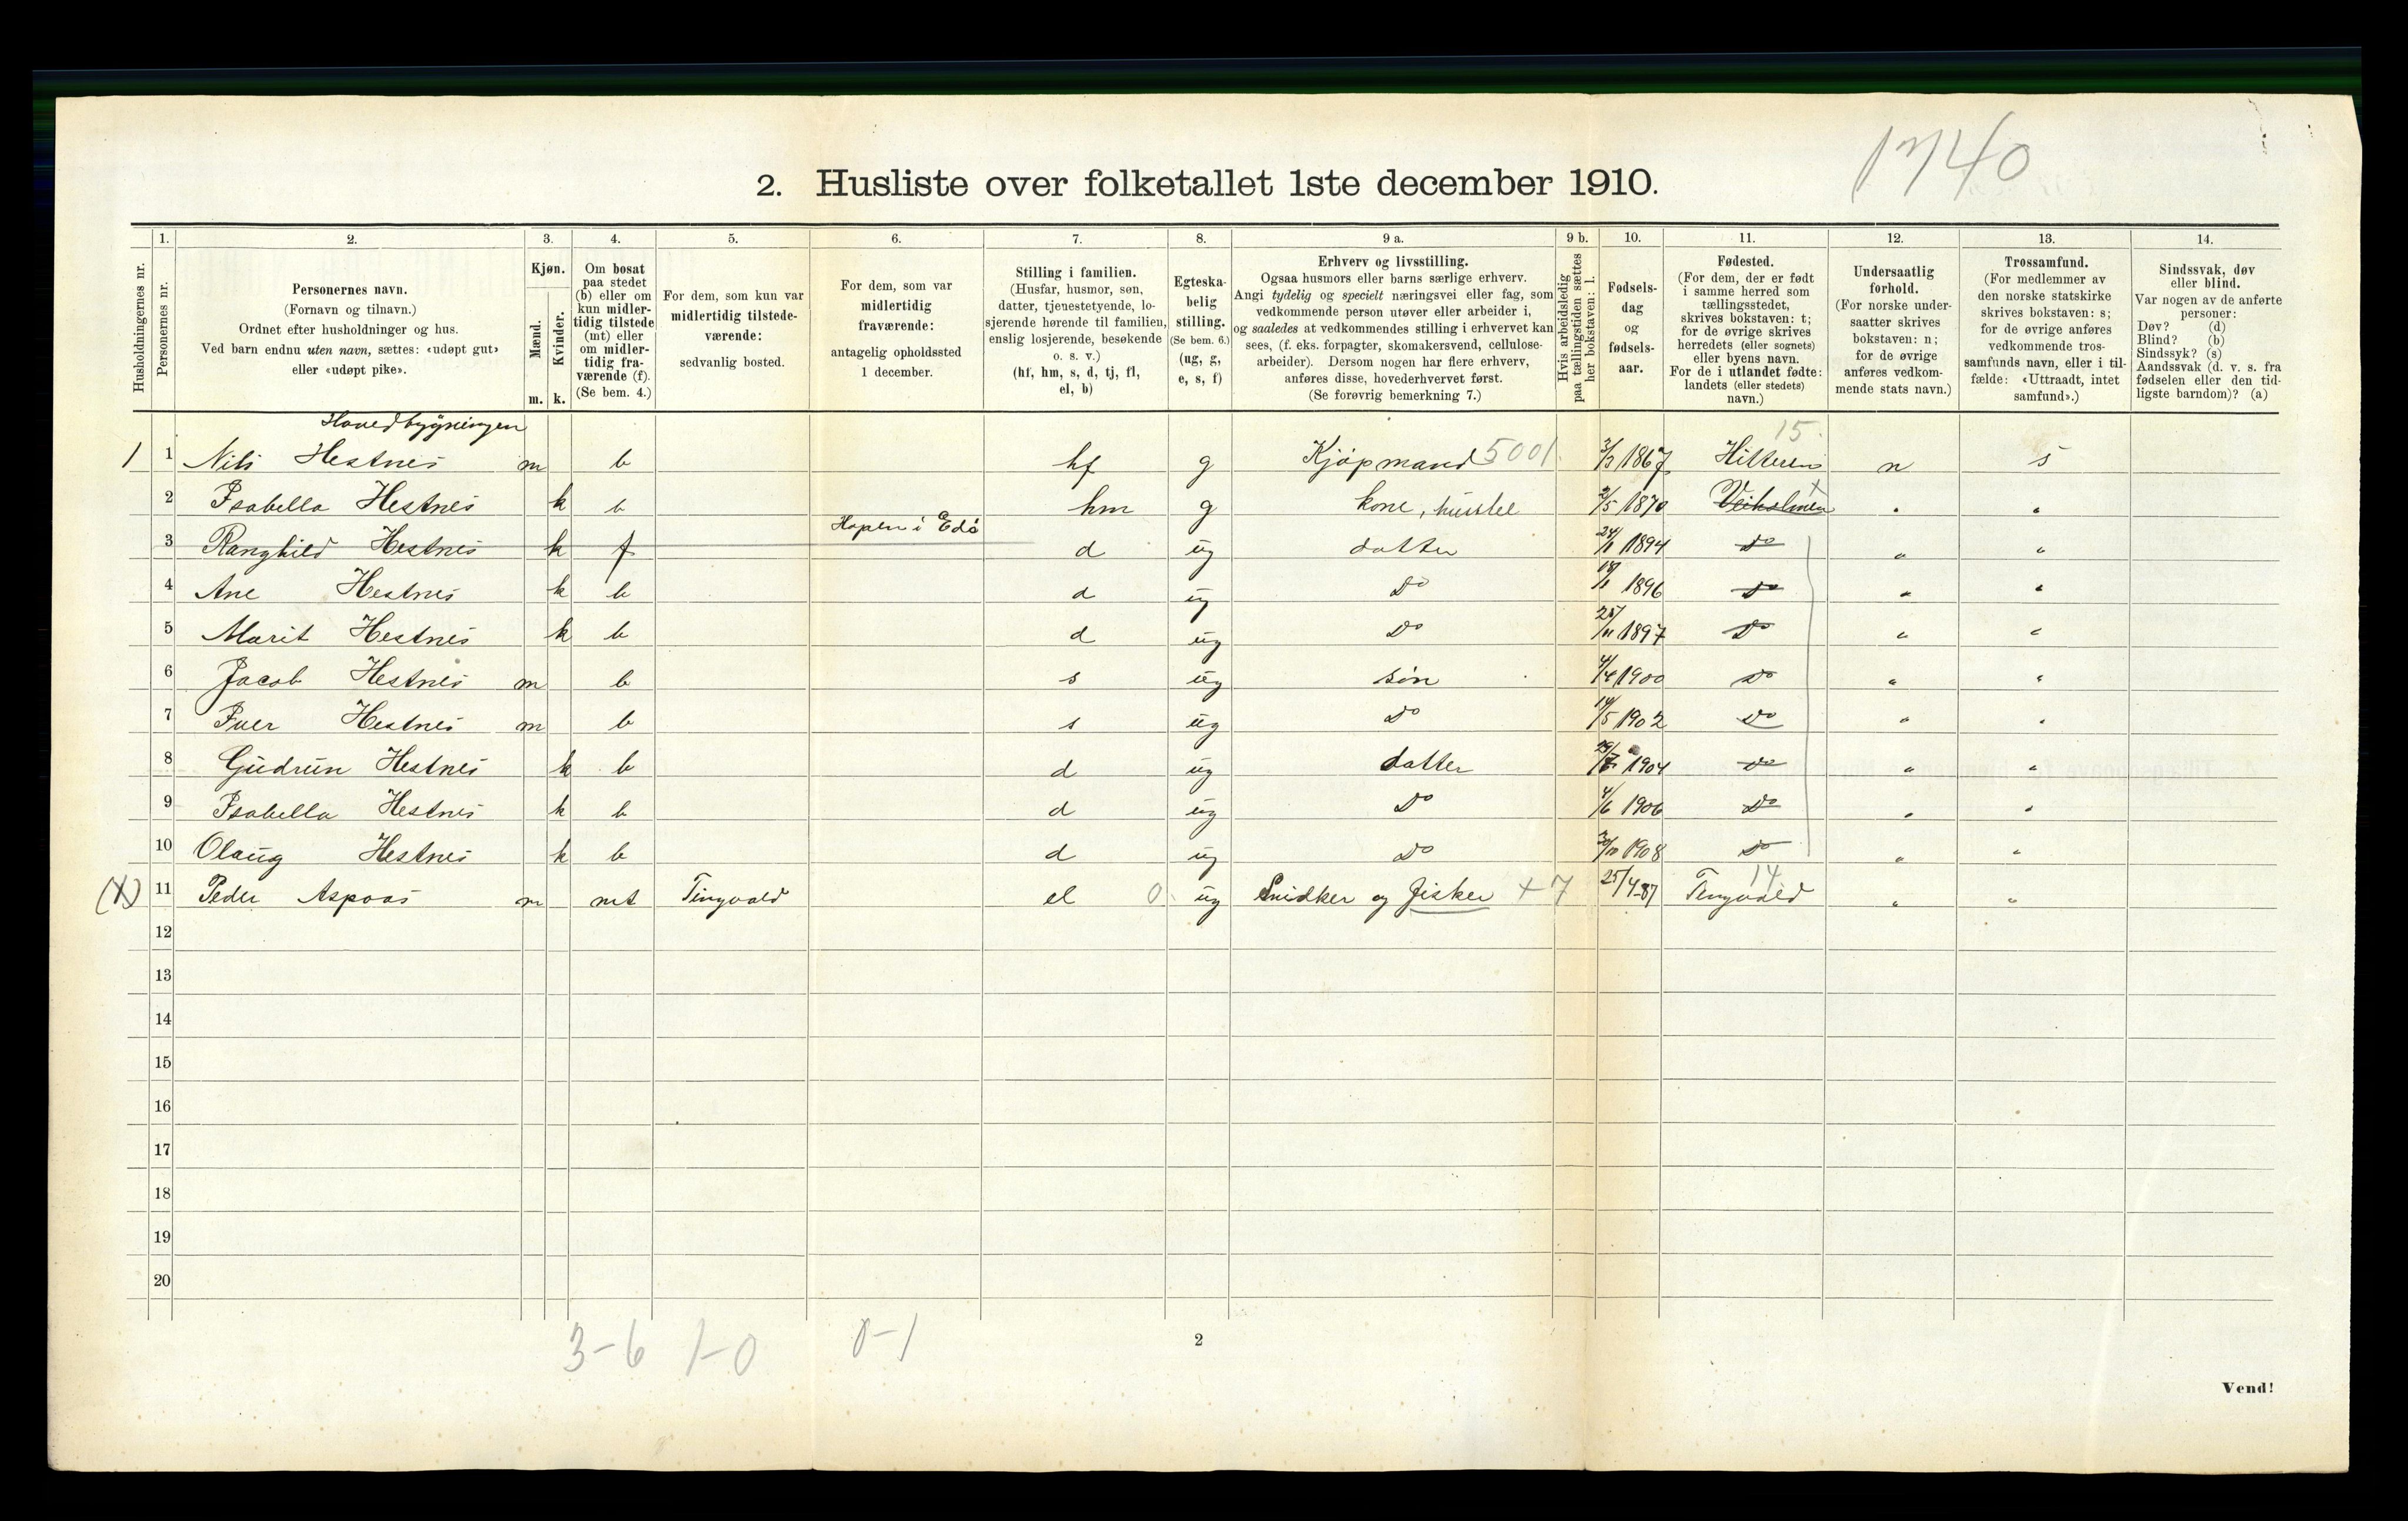 1740
2. Husliste over folketallet 1ste december 1910.
Husholdningernes nr.
1.
Personernes nr.
2.
Personernes navn.
(Fornavn og tilnavn.)
Ordnet efter husholdninger og hus.
Ved barn endnu uten navn, sættes: «udøpt gut»
eller «udøpt pike».
3.
Kjøn.
Mænd.
Kvinder.
m. k.
4.
Om bosat
paa stedet
(b) eller om
kun midler-
tidig tilstede
(mt) eller
om midler-
tidig fra-
værende (f).
(Se bem. 4.)
5.
For dem, som kun var
midlertidig tilstede-
værende:
sedvanlig bosted.
6.
For dem, som var
midlertidig
fraværende:
antagelig opholdssted
1 december.
7.
Stilling i familien.
(Husfar, husmor, søn,
datter, tjenestetyende, lo-
sjerende hørende til familien,
enslig losjerende, besøkende
o. s. v.)
(hf, hm, s, d, tj, fl,
el, b)
8.
Egteska-
belig
stilling.
(Se bem. 6.)
(ug, g,
e, s, f)
9 a.
Erhverv og livsstilling.
Ogsaa husmors eller barns særlige erhverv.
Angi tydelig og specielt næringsvei eller fag, som
vedkommende person utøver eller arbeider i,
og saaledes at vedkommendes stilling i erhvervet kan
sees, (f. eks. forpagter, skomakersvend, cellulose-
arbeider). Dersom nogen har flere erhverv,
anføres disse, hovederhvervet først.
(Se forøvrig bemerkning 7.)
9 b.
Hvis arbeidsledig
paa tællingstiden sættes
her bokstaven: l.
10.
Fødsels-
dag
og
fødsels-
aar.
11.
Fødested.
(For dem, der er født
i samme herred som
tællingsstedet,
skrives bokstaven: t;
for de øvrige skrives
herredets (eller sognets)
eller byens navn.
For de i utlandet fødte:
landets (eller stedets)
navn.)
12.
Undersaatlig
forhold.
(For norske under-
saatter skrives
bokstaven: n;
for de øvrige
anføres vedkom-
mende stats navn.)
13.
Trossamfund.
(For medlemmer av
den norske statskirke
skrives bokstaven: s;
for de øvrige anføres
vedkommende tros-
samfunds navn, eller i til-
fælde: «Uttraadt, intet
samfund».)
14.
Sindssvak, døv
eller blind.
Var nogen av de anførte
personer:
Døv? (d)
Blind? (b)
Sindssyk? (s)
Aandssvak (d. v. s. fra
fødselen eller den tid-
ligste barndom)? (a)
Hovedbygningen
15.
1 1 Nils Hestnes m b hf g Kjøpmand 5001. 3/3 1867 Hitteren n s
2 Isabella Hestnes k b hm g kone, husstel 2/5 1870 Veiholmen x " "
3 Ranghild Hestnes k f Hopen i Edø d ug datter 24/11 1894 Do " "
4 Ane Hestnes k b d ug Do 1896 Do " "
5 Marit Hestnes k b d ug Do 25/11 1897 Do " "
6 Jacob Hestnes m b s ug søn 4/4 1900 Do " "
7 Iver Hestnes m b s ug Do 14/5 1902 Do " "
8 Gudrun Hestnes k b d ug datter 29/7 1904 Do " "
9 Isabella Hestnes k b d ug Do 4/6 1906 Do " "
10 Olaug Hestnes k b d ug Do 1908 Do " "
14
(X) 11 Peder Aspaas m mt Tingvold el 0. ug Snidker og fisker + 7 25/4-87 Tingvold " "
12
13
14
15
16
17
18
19
20
3-6 1-0 0-1
2
Vend!